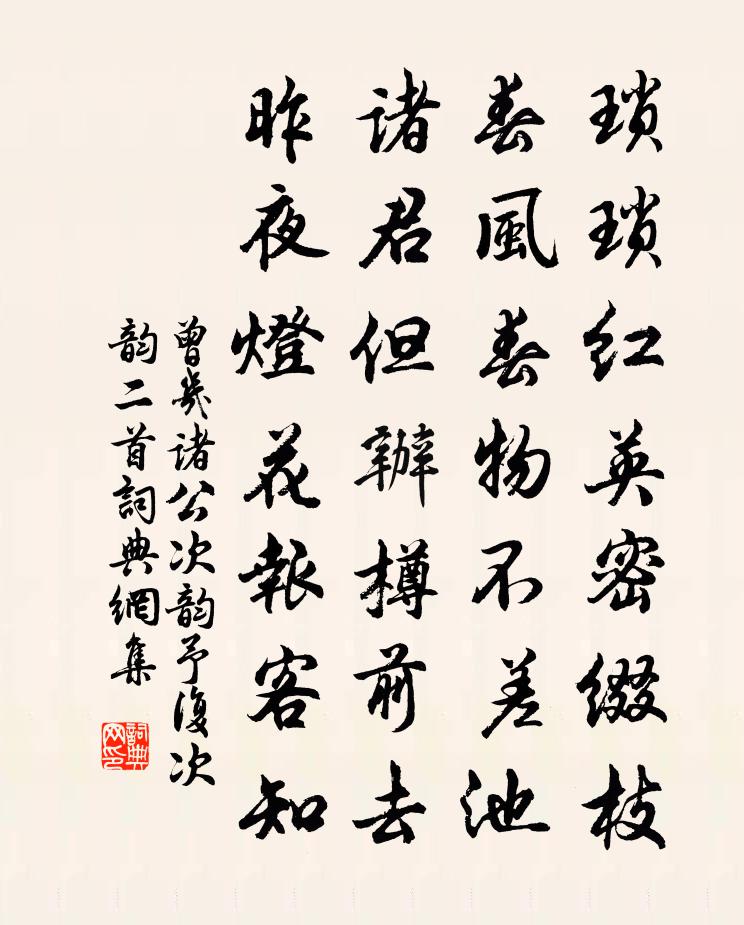 瑣瑣紅英密綴枝
春風春物不差池
諸君但辦樽前去
昨夜燈花報客知
曾幾諸公次韵予復次
韵二首詞典網集
詞典
网印